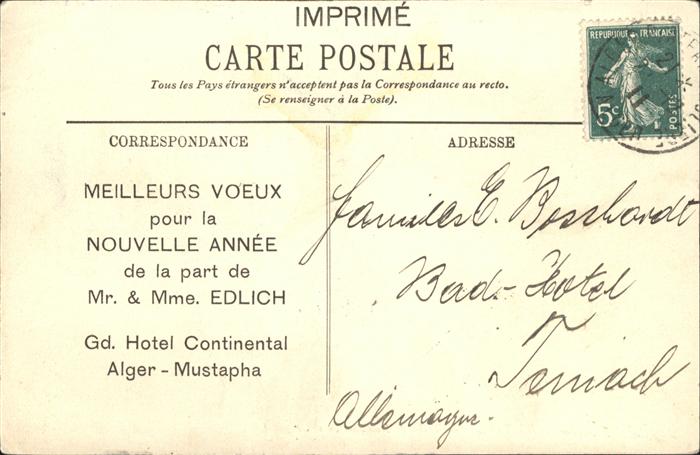 IMPRIMÉ
CARTE POSTALE
Tous les Pays étrangers n'acceptent pas la Correspondance au recto.
(Se renseigner à la Poste).
REPUBLIQUE FRANÇAISE
5c
POSTES
CORRESPONDANCE
ADRESSE
MEILLEURS VOEUX
pour la
NOUVELLE ANNÉE
de la part de
Mr. & Mme. EDLICH
Gd. Hotel Continental
Alger - Mustapha
E. Bosshardt
Bad-Hotel
Teinach
Allemagne.